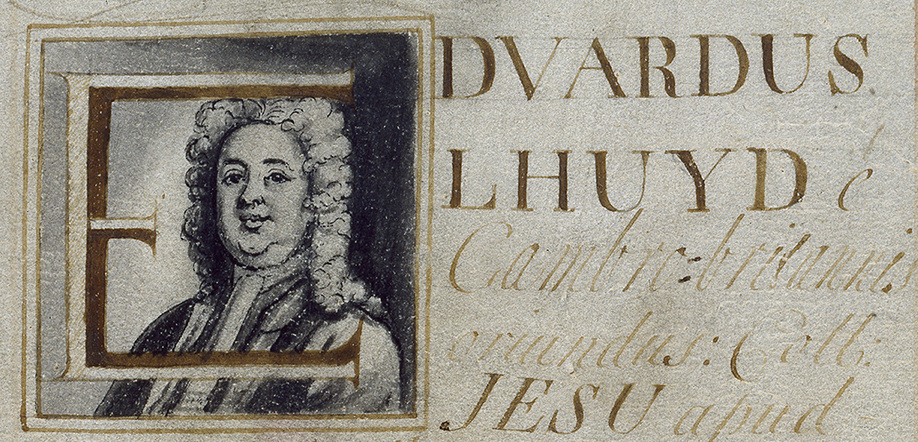 EDVARDUS
LHUYD è
Cambro-britannis
oriundus: Coll:
JESU apud